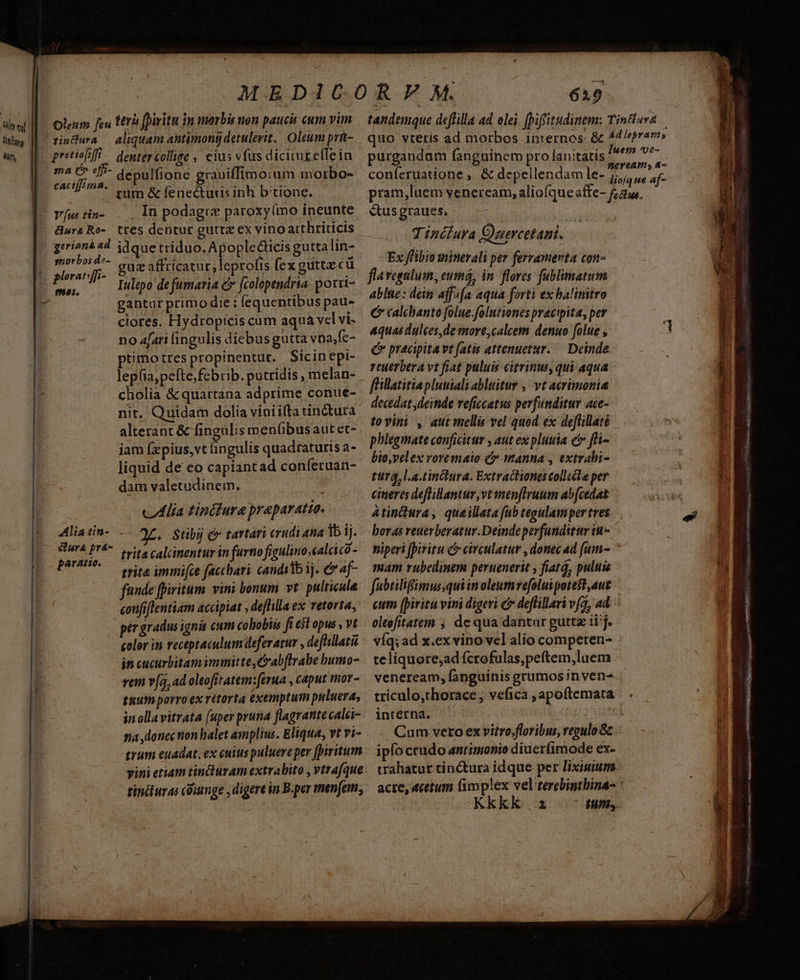 MEDICORVM. 619
Oleum seu
tinctura
pretiosissi
ma & effi-
cacissima.
Vsus tin-
cturæ Ro-
geriana ad
morbos de-
ploratissi-
mos.
Alia tin-
cturæ præ-
paratio.
teris spiritu in morbis non paucis cum vim
aliquam antimonij detulerit. Oleum pru-
denter collige, eius vsus dicitur esse in
depulsione grauissimorum morbo-
rum & senectutis inhibitione.
In podagræ paroxysmo ineunte
tres dentur guttæ ex vino arthriticis
idque triduo. Apoplecticis gutta lin-
guæ affricatur, leprosis sex guttæ cũ
Iulepo de fumaria & scolopendria porri-
gantur primo die: sequentibus pau-
ciores. Hydropicis cum aqua vel vi-
no asari singulis diebus gutta vna, se-
ptimo tres propinentur. Sic in epi-
lepsia, peste, febrib. putridis, melan-
cholia & quartana adprime conue-
nit. Quidam dolia vini ista tinctura
alterant & singulis mensibus aut et-
iam sæpius, vt singulis quadraturis a-
liquid de eo capiant ad conseruan-
dam valetudinem.
Alia tincturæ præparatio.
℞. Stibij & tartari crudi ana ℔ ij.
trita calcinentur in furno figulino, calci cõ-
trita immisce sacchari candi ℔ ij. & af-
funde spiritum vini bonum vt pulticulæ
consistentiam accipiat, destilla ex retorta,
per gradus ignis cum cohobiis si est opus, vt
color in receptaculum deferatur, destillatũ
in cucurbitam immitte, & abstrahe humo-
rem vsq; ad oleositatem: serua, caput mor-
tuum porro ex retorta exemptum puluera,
in olla vitrata super pruna flagrante calci-
na, donec non halet amplius. Eliqua, vt vi-
trum euadat, ex cuius puluere per spiritum
vini etiam tincturam extrahito, vtrasque
tincturas cõiunge, digere in B. per mensem,
tandemque destilla ad olei spissitudinem: Tinctura
quo vteris ad morbos internos & ad lepram,
purgandam sanguinem pro sanitatis luem ve-
conseruatione, & depellendam le- neream, a-
pram, luem veneream, aliosque affe- liosque af-
ctus graues. fectus.
Tinctura Quercetani.
Ex stibio minerali per ferramenta con-
fla regulum, eumq́, in flores sublimatum
ablue: dein affusa aqua forti ex halinitro
& calchanto solue. solutiones præcipita, per
aquas dulces, de more, calcem denuo solue,
& præcipita vt satis attenuetur. Deinde
reuerbera vt fiat puluis citrinus, qui aqua
stillatitia pluuiali abluitur, vt acrimonia
decedat, deinde reficcatus perfunditur ace-
to vini, aut mellis vel quod ex destillato
phlegmate conficitur, aut ex pluuia & sti-
bio, vel ex rore maio & manna, extrahi-
turq́, l.a. tinctura. Extractiones collectæ per
cineres destillantur, vt menstruum abscedat
à tinctura, quæ illata sub tegulam per tres
horas reuerberatur. Deinde perfunditur iu-
niperi spiritu & circulatur, donec ad sum-
mam rubedinem peruenerit, fiatq́, puluis
subtilissimus, qui in oleum resolui potest, aut
cum spiritu vini digeri & destillari vsq́, ad
oleositatem, de qua dantur guttæ iiij.
vsq; ad x. ex vino vel alio competen-
te liquore, ad scrofulas, pestem, luem
veneream, sanguinis grumos in ven-
triculo, thorace, vesica, apostemata
interna.
Cum vero ex vitro, floribus, regulo &
ipso crudo antimonio diuersimode ex-
trahatur tinctura idque per lixiuium
acre, acetum simplex vel terebinthina-
Kkkk 2 tum,